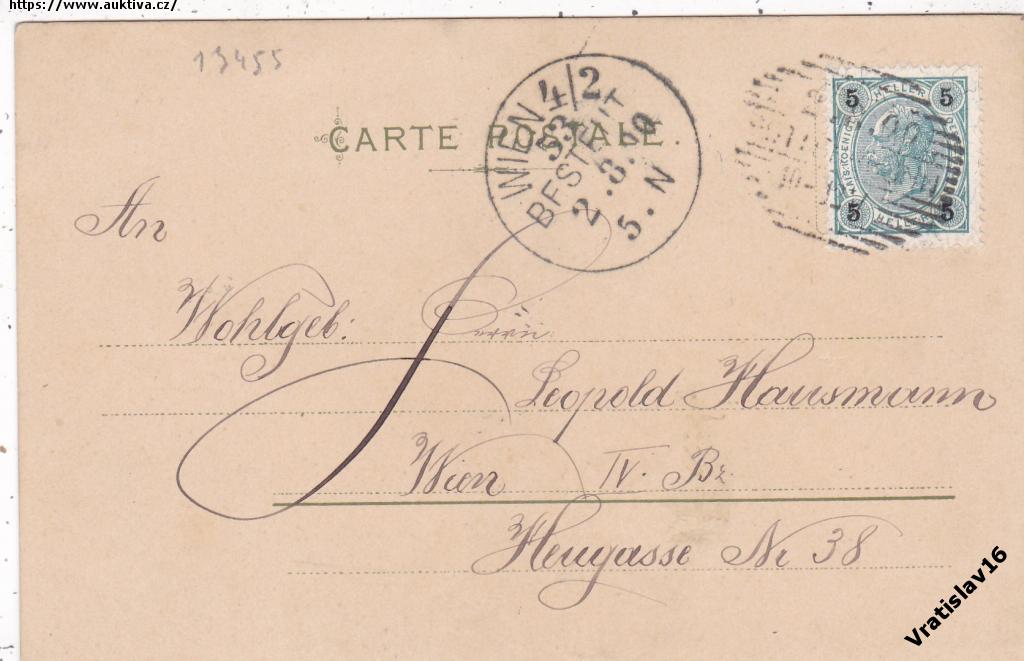 https://www.auktiva.cz/
13455
CARTE POSTALE.
WIEN 4/2
53
BESTELLT
2.8.00
5.N
5 HELLER 5
KAIS. KOENIGL.
5 HELLER 5
An
Wohlgeb: Herrn
Leopold Hausmann
Wien IV. Bz
Heugasse Nr 38
Vratislav16